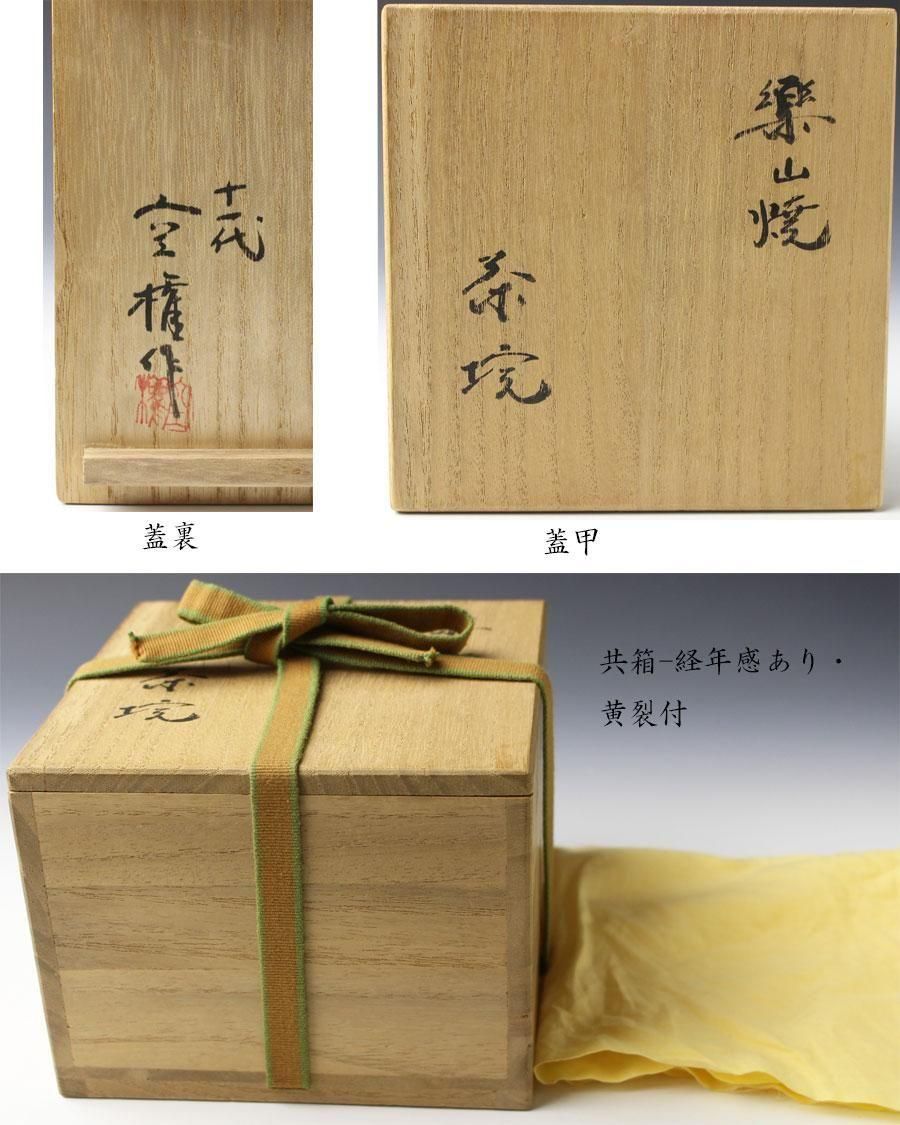 十一代
空權作
蓋裏
樂山焼
茶垸
蓋甲
茶
垸
共箱-経年感あり・
黄裂付